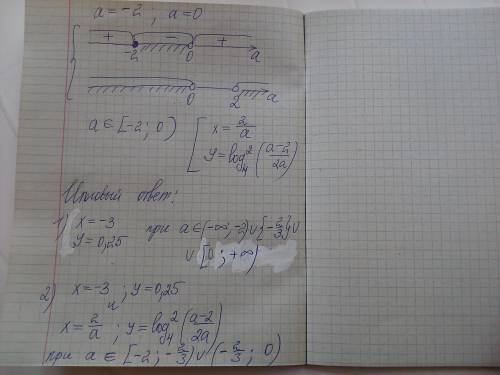 a=-2 , a=0
+ - +
-2 0 a
0 2 a
a ∈ [-2; 0) [ x = 2/a
y = log₄²((a-2)/2a)
Итоговый ответ:
1) x=-3
y=0,25 при a∈(-∞;-2)∪{-2/3}∪
∪ [0; +∞)
2) x=-3 и y=0,25
x=2/a ; y=log₄²((a-2)/2a)
при a ∈ [-2; -2/3)∪(-2/3; 0)